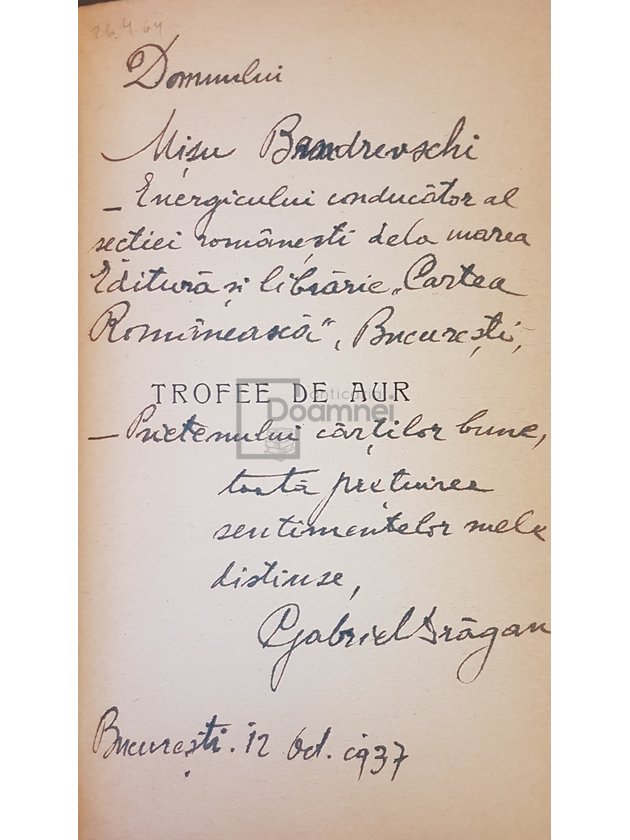 26.4 64
Domnului
Mișu Bandrevschi
– Energicului conducător al
secției românești dela marea
Editură și librărie „Cartea
Românească", București,
TROFEE DE AUR
anticariat
Doamnei
– Prietenului cărților bune,
toată prețuirea
sentimentelor mele
distinse,
Gabriel Drăgan
București. 12 Oct. 1937